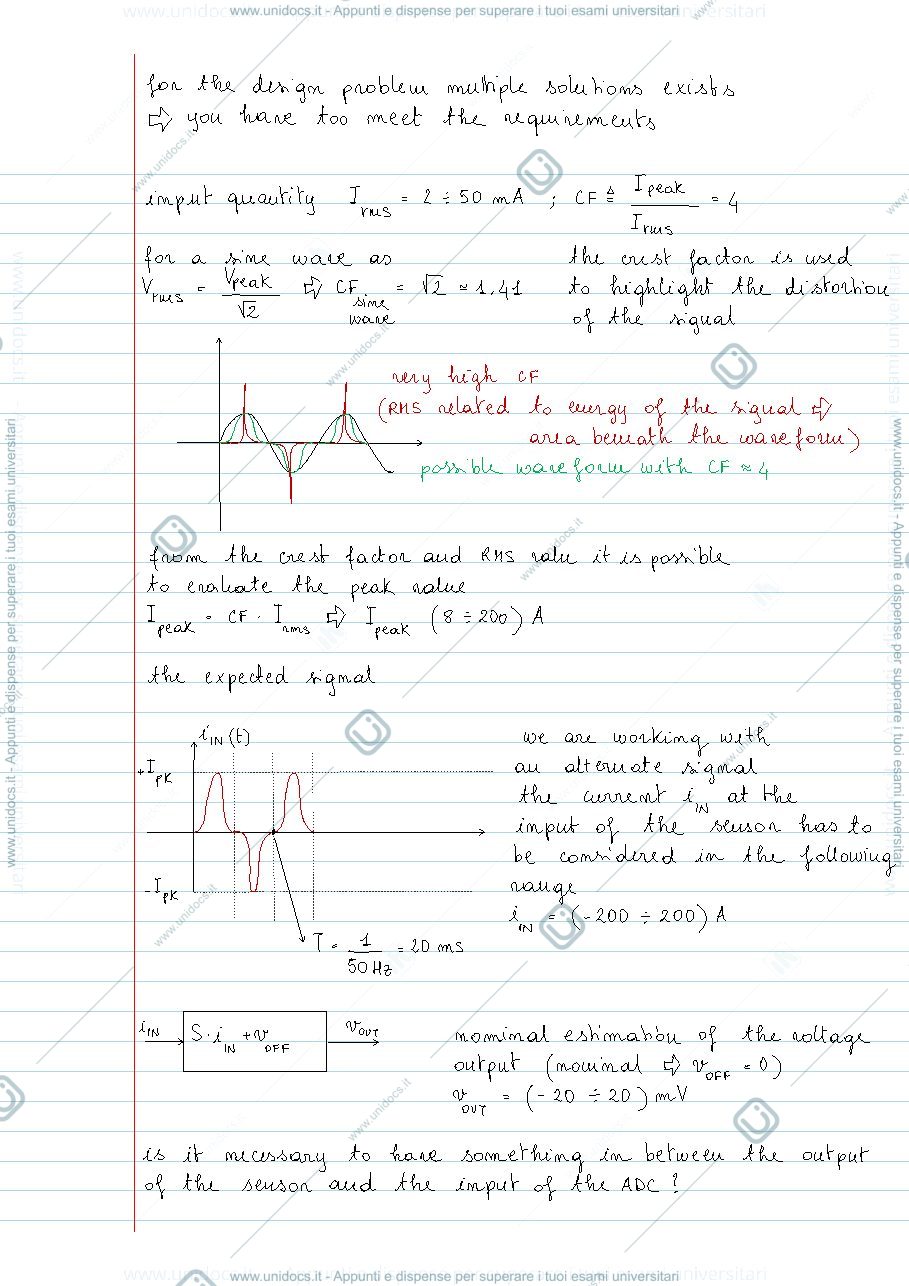 www.unidocs.it - Appunti e dispense per superare i tuoi esami universitari
for the design problem multiple solutions exists
⇨ you have too meet the requirements
input quantity I_rms = 2 ÷ 50 mA ; CF ≜ I_peak / I_rms = 4
for a sine wave as
V_rms = V_peak / √2 ⇨ CF_sine wave = √2 ≈ 1,41
the crest factor is used
to highlight the distortion
of the signal
very high CF
(RMS related to energy of the signal ⇨
area beneath the waveform)
possible waveform with CF ≈ 4
from the crest factor and RMS value it is possible
to evaluate the peak value
I_peak = CF · I_rms ⇨ I_peak (8 ÷ 200) A
the expected signal
i_IN (t)
+I_PK
-I_PK
T = 1 / 50 Hz = 20 ms
we are working with
an alternate signal
the current i_IN at the
input of the sensor has to
be considered in the following
range
i_IN = (-200 ÷ 200) A
i_IN
S · i_IN + v_OFF
v_OUT
nominal estimation of the voltage
output (nominal ⇨ v_OFF = 0)
v_OUT = (-20 ÷ 20) mV
is it necessary to have something in between the output
of the sensor and the input of the ADC ?
www.unidocs.it - Appunti e dispense per superare i tuoi esami universitari
www.unidocs.it - Appunti e dispense per superare i tuoi esami universitari
www.unidocs.it - Appunti e dispense per superare i tuoi esami universitari
www.unidocs.it